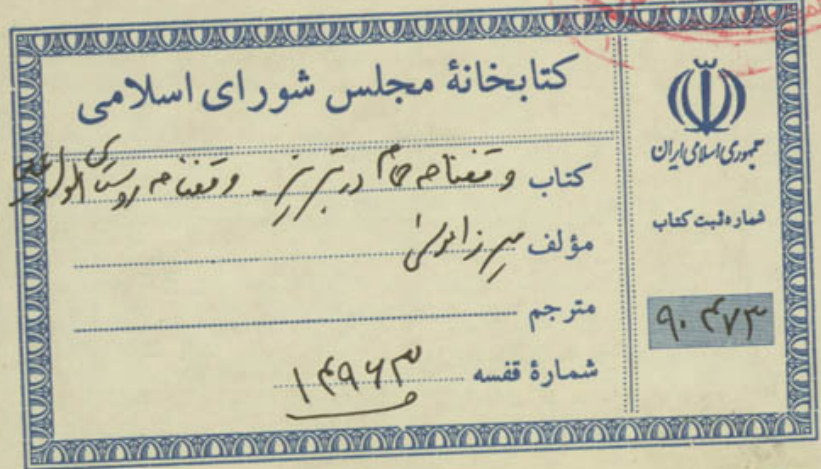 کتابخانهٔ مجلس شورای اسلامی
کتاب وقفنامه حمام در تبریز - وقفنامه روستای
مؤلف میرزا
مترجم
شمارهٔ قفسه ۱۴۹۶۳
جمهوری اسلامی ایران
شمارهٔ ثبت کتاب
۹۰۴۷۳